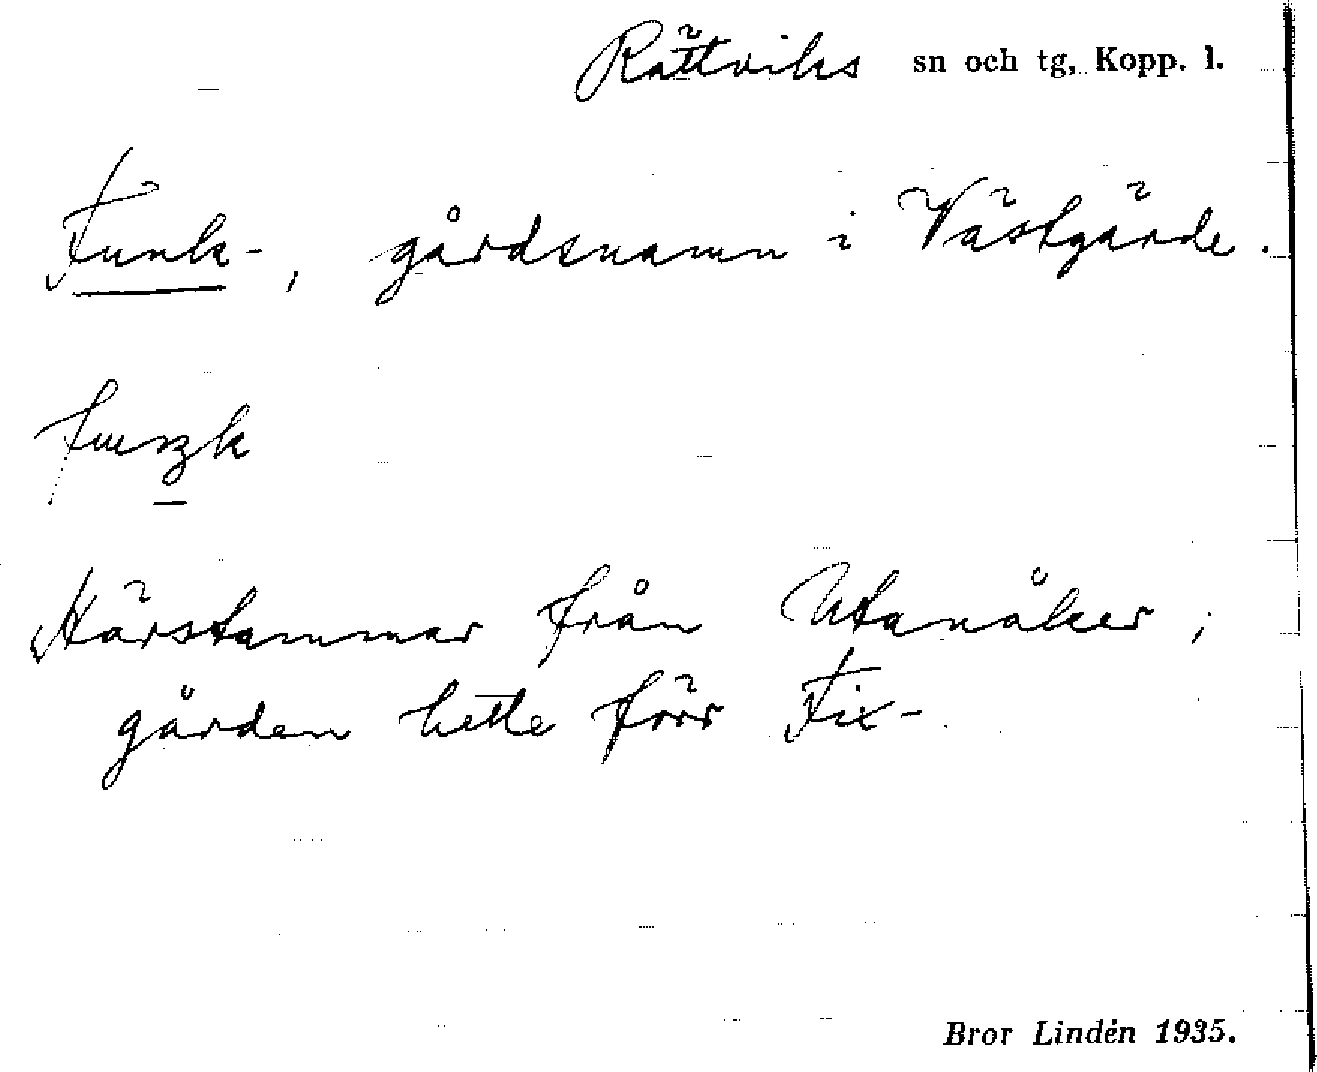 Rättviks sn och tg, Kopp. l.
Funk-, gårdsnamn i Västgärde.
Härstammar från Utanåker;
gården hette förr Fix-.
Bror Lindén 1935.